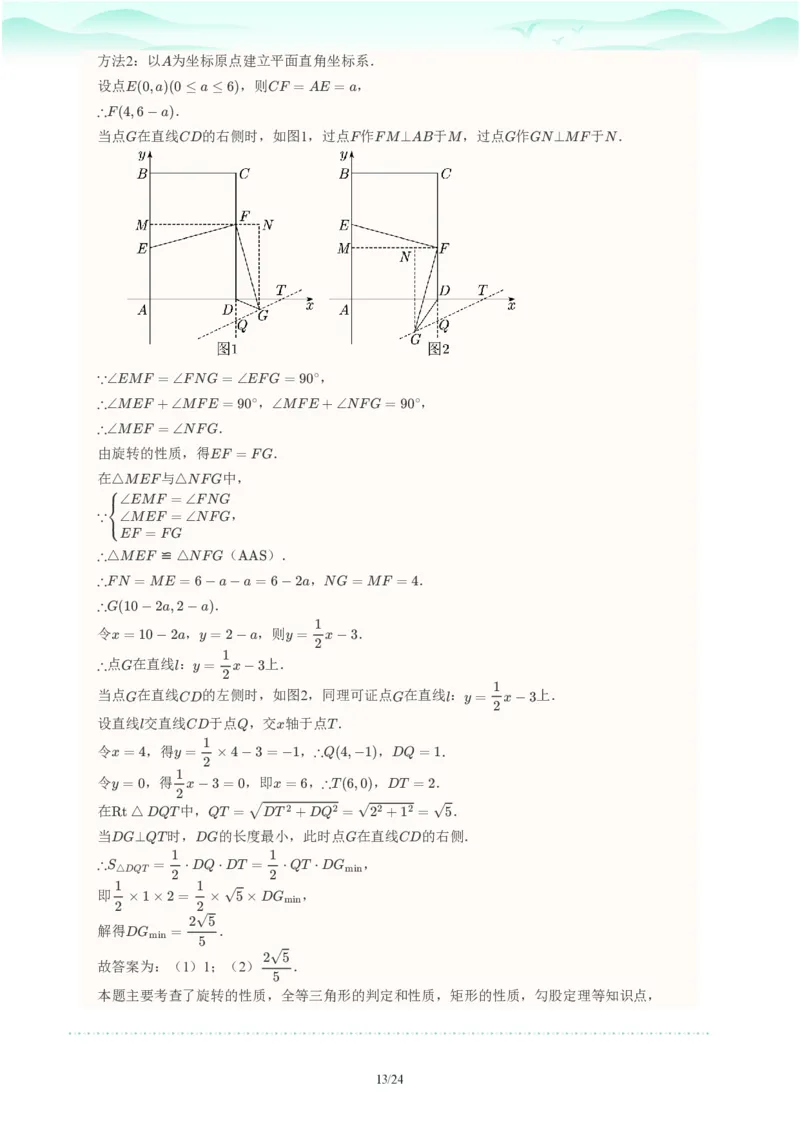 方法2：以A为坐标原点建立平面直角坐标系．
设点E(0,a)(0≤a≤6)，则CF=AE=a，
∴F(4,6−a)．
当点G在直线CD的右侧时，如图1，过点F作FM⊥AB于M，过点G作GN⊥MF于N．
y
B
C
M
F
N
E
T
A
D
G
x
Q
图1
y
B
C
E
M
F
N
D
T
A
x
Q
G
图2
∵∠EMF=∠FNG=∠EFG=90°，
∴∠MEF+∠MFE=90°，∠MFE+∠NFG=90°，
∴∠MEF=∠NFG．
由旋转的性质，得EF=FG．
在△MEF与△NFG中，
∵{∠EMF=∠FNG
∠MEF=∠NFG，
EF=FG
∴△MEF≌△NFG（AAS）．
∴FN=ME=6−a−a=6−2a，NG=MF=4．
∴G(10−2a,2−a)．
令x=10−2a，y=2−a，则y=1/2x−3．
∴点G在直线l：y=1/2x−3上．
当点G在直线CD的左侧时，如图2，同理可证点G在直线l：y=1/2x−3上．
设直线l交直线CD于点Q，交x轴于点T．
令x=4，得y=1/2×4−3=−1，∴Q(4,−1)，DQ=1．
令y=0，得1/2x−3=0，即x=6，∴T(6,0)，DT=2．
在Rt△DQT中，QT=√(DT²+DQ²)=√(2²+1²)=√5．
当DG⊥QT时，DG的长度最小，此时点G在直线CD的右侧．
∴S△DQT=1/2·DQ·DT=1/2·QT·DGmin，
即1/2×1×2=1/2×√5×DGmin，
解得DGmin=2√5/5．
故答案为：（1）1；（2）2√5/5．
本题主要考查了旋转的性质，全等三角形的判定和性质，矩形的性质，勾股定理等知识点，
13/24